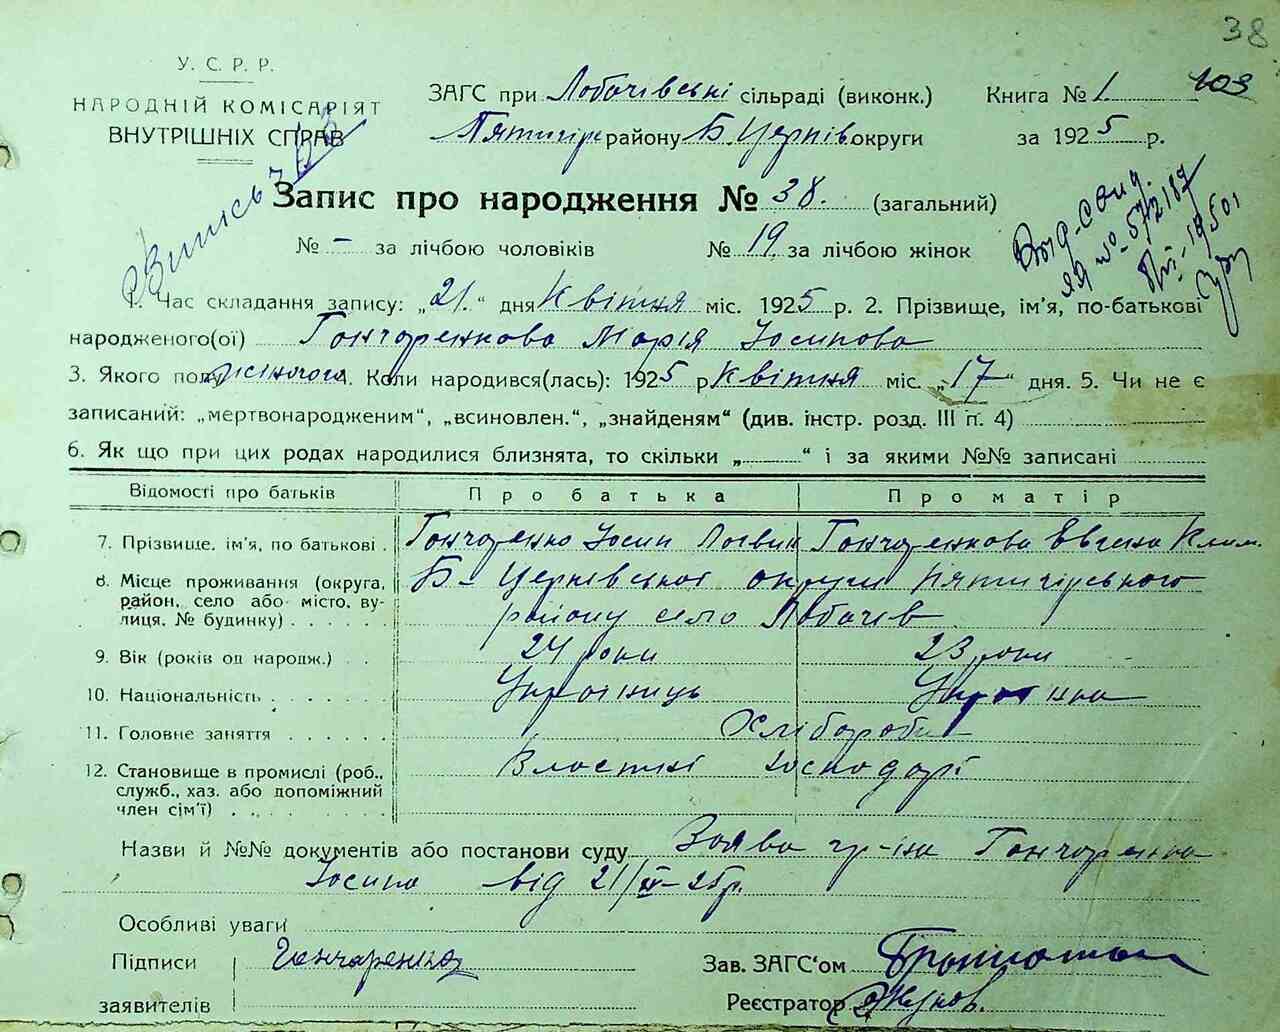 38
У. С. Р. Р.
НАРОДНІЙ КОМІСАРІЯТ
ВНУТРІШНІХ СПРАВ
ЗАГС при Лобачівські сільраді (виконк.) Книга № 1 103
Пятигір району Б. Церків округи за 1925 р.
Запис про народження № 38. (загальний)
№ – за лічбою чоловіків № 19 за лічбою жінок
1. Час складання запису: „21.“ дня Квітня міс. 1925 р. 2. Прізвище, ім'я, по-батькові
народженого(ої) Гончаренкова Марія Йосипова
3. Якого полу жіночого 4. Коли народився(лась): 1925 р Квітня міс. „17“ дня. 5. Чи не є
записаний: „мертвонародженим“, „всиновлен.“, „знайденям“ (див. інстр. розд. III п. 4)
6. Як що при цих родах народилися близнята, то скільки „ “ і за якими №№ записані
Відомості про батьків Про батька Про матір
7. Прізвище, ім'я, по батькові . Гончаренко Йосип Логвин Гончаренкова Євгена Клим.
8. Місце проживання (округа, Б–Церківської округи Пятигірського
район, село або місто, ву- району село Лобачів
лиця, № будинку) . . . . . .
9. Вік (років од народж.) . . 24 роки 23 роки
10. Національність . . . . . . Українець Українка
11. Головне заняття . . . . . . Хлібороби
12. Становище в промислі (роб., Властині господарі
служб., хаз. або допоміжний
член сім'ї) . . . . . . . .
Назви й №№ документів або постанови суду Заява гр-на Гончаренка
Йосипа від 21/IV–25р.
Особливі уваги
Підписи Гончаренко Зав. ЗАГС'ом
заявителів Реєстратор